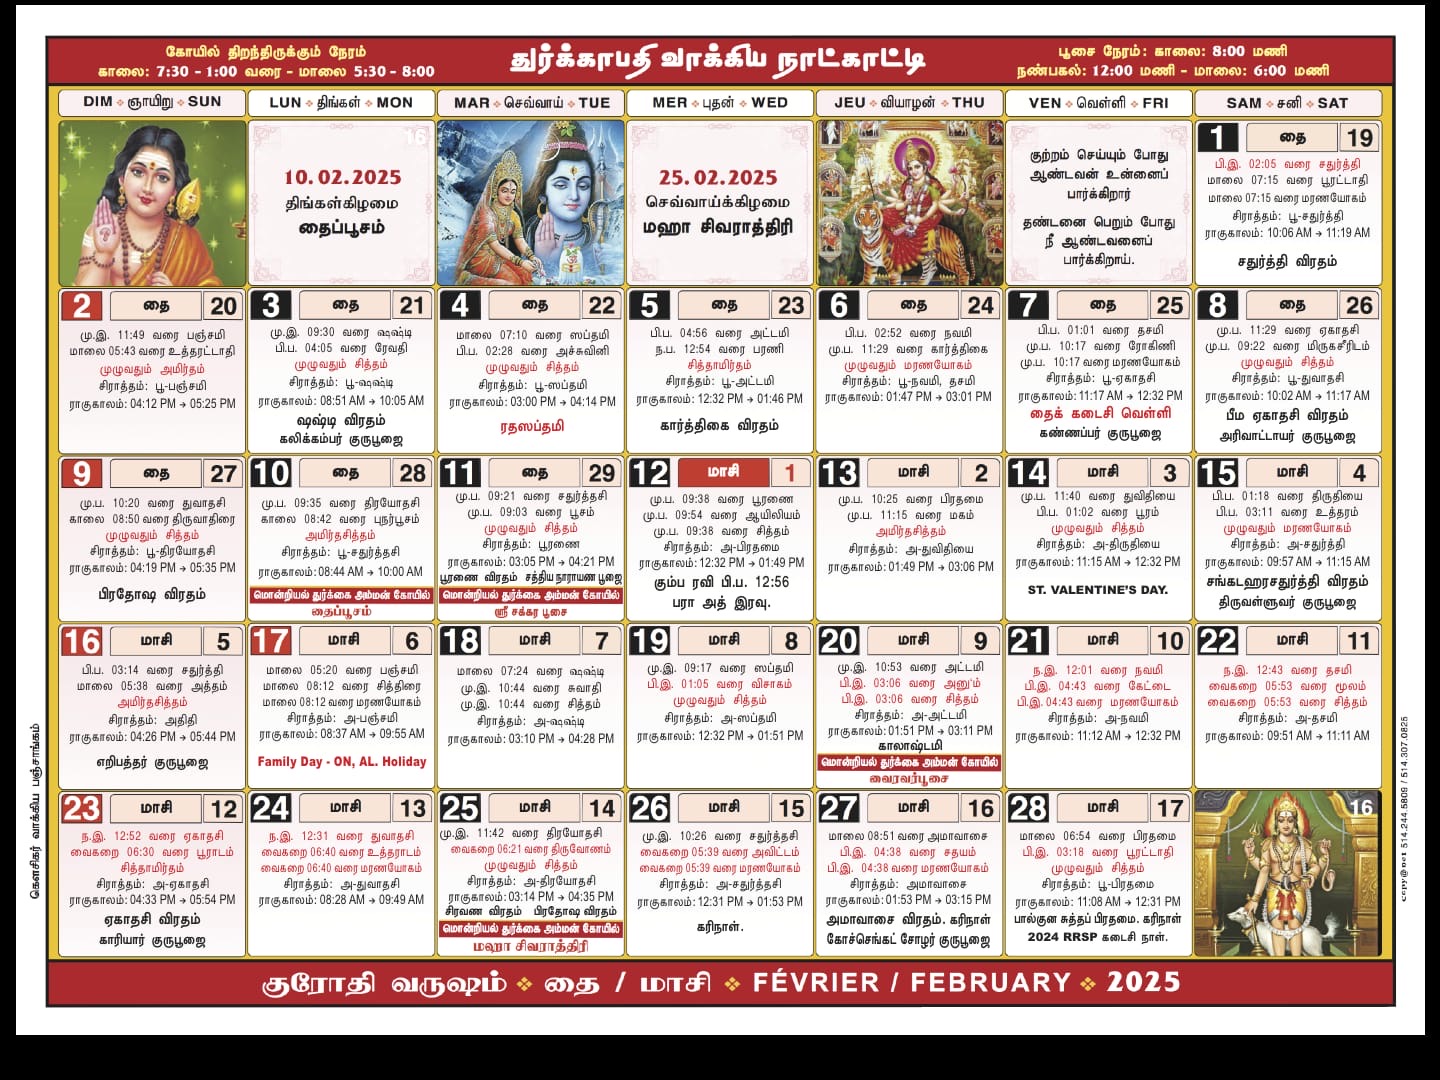 கோயில் திறந்திருக்கும் நேரம்
காலை: 7:30 - 1:00 வரை - மாலை 5:30 - 8:00
துர்க்காபதி வாக்கிய நாட்காட்டி
பூசை நேரம்: காலை: 8:00 மணி
நண்பகல்: 12:00 மணி - மாலை: 6:00 மணி
DIM ஞாயிறு SUN
LUN திங்கள் MON
MAR செவ்வாய் TUE
MER புதன் WED
JEU வியாழன் THU
VEN வெள்ளி FRI
SAM சனி SAT
16
10.02.2025
திங்கள்கிழமை
தைப்பூசம்
25.02.2025
செவ்வாய்க்கிழமை
மஹா சிவராத்திரி
குற்றம் செய்யும் போது
ஆண்டவன் உன்னைப்
பார்க்கிறார்
தண்டனை பெறும் போது
நீ ஆண்டவனைப்
பார்க்கிறாய்.
1 தை 19
பி.இ. 02:05 வரை சதுர்த்தி
மாலை 07:15 வரை பூரட்டாதி
மாலை 07:15 வரை மரணயோகம்
சிராத்தம்: பூ-சதுர்த்தி
ராகுகாலம்: 10:06 AM → 11:19 AM
சதுர்த்தி விரதம்
2 தை 20
மு.இ. 11:49 வரை பஞ்சமி
மாலை 05:43 வரை உத்தரட்டாதி
முழுவதும் அமிர்தம்
சிராத்தம்: பூ-பஞ்சமி
ராகுகாலம்: 04:12 PM → 05:25 PM
3 தை 21
மு.இ. 09:30 வரை ஷஷ்டி
பி.ப. 04:05 வரை ரேவதி
முழுவதும் சித்தம்
சிராத்தம்: பூ-ஷஷ்டி
ராகுகாலம்: 08:51 AM → 10:05 AM
ஷஷ்டி விரதம்
கலிக்கம்பர் குருபூஜை
4 தை 22
மாலை 07:10 வரை ஸப்தமி
பி.ப. 02:28 வரை அச்சுவினி
முழுவதும் சித்தம்
சிராத்தம்: பூ-ஸப்தமி
ராகுகாலம்: 03:00 PM → 04:14 PM
ரதஸப்தமி
5 தை 23
பி.ப. 04:56 வரை அட்டமி
ந.ப. 12:54 வரை பரணி
சித்தாமிர்தம்
சிராத்தம்: பூ-அட்டமி
ராகுகாலம்: 12:32 PM → 01:46 PM
கார்த்திகை விரதம்
6 தை 24
பி.ப. 02:52 வரை நவமி
மு.ப. 11:29 வரை கார்த்திகை
முழுவதும் மரணயோகம்
சிராத்தம்: பூ-நவமி, தசமி
ராகுகாலம்: 01:47 PM → 03:01 PM
7 தை 25
பி.ப. 01:01 வரை தசமி
மு.ப. 10:17 வரை ரோகிணி
மு.ப. 10:17 வரை மரணயோகம்
சிராத்தம்: பூ-ஏகாதசி
ராகுகாலம்: 11:17 AM → 12:32 PM
தைக் கடைசி வெள்ளி
கண்ணப்பர் குருபூஜை
8 தை 26
மு.ப. 11:29 வரை ஏகாதசி
மு.ப. 09:22 வரை மிருகசீரிடம்
முழுவதும் சித்தம்
சிராத்தம்: பூ-துவாதசி
ராகுகாலம்: 10:02 AM → 11:17 AM
பீம ஏகாதசி விரதம்
அரிவாட்டாயர் குருபூஜை
9 தை 27
மு.ப. 10:20 வரை துவாதசி
காலை 08:50 வரை திருவாதிரை
முழுவதும் சித்தம்
சிராத்தம்: பூ-திரயோதசி
ராகுகாலம்: 04:19 PM → 05:35 PM
பிரதோஷ விரதம்
10 தை 28
மு.ப. 09:35 வரை திரயோதசி
காலை 08:42 வரை புநர்பூசம்
அமிர்தசித்தம்
சிராத்தம்: பூ-சதுர்த்தசி
ராகுகாலம்: 08:44 AM → 10:00 AM
மொன்றியல் துர்க்கை அம்மன் கோயில்
தைப்பூசம்
11 தை 29
மு.ப. 09:21 வரை சதுர்த்தசி
மு.ப. 09:03 வரை பூசம்
முழுவதும் சித்தம்
சிராத்தம்: பூரணை
ராகுகாலம்: 03:05 PM → 04:21 PM
பூரணை விரதம் சத்தியநாராயண பூஜை
மொன்றியல் துர்க்கை அம்மன் கோயில்
ஸ்ரீ சக்கர பூசை
12 மாசி 1
மு.ப. 09:38 வரை பூரணை
மு.ப. 09:54 வரை ஆயிலியம்
மு.ப. 09:38 வரை சித்தம்
சிராத்தம்: அ-பிரதமை
ராகுகாலம்: 12:32 PM → 01:49 PM
கும்ப ரவி பி.ப. 12:56
பரா அத் இரவு.
13 மாசி 2
மு.ப. 10:25 வரை பிரதமை
மு.ப. 11:15 வரை மகம்
அமிர்தசித்தம்
சிராத்தம்: அ-துவிதியை
ராகுகாலம்: 01:49 PM → 03:06 PM
14 மாசி 3
மு.ப. 11:40 வரை துவிதியை
பி.ப. 01:02 வரை பூரம்
முழுவதும் சித்தம்
சிராத்தம்: அ-திருதியை
ராகுகாலம்: 11:15 AM → 12:32 PM
ST. VALENTINE'S DAY.
15 மாசி 4
பி.ப. 01:18 வரை திருதியை
பி.ப. 03:11 வரை உத்தரம்
முழுவதும் மரணயோகம்
சிராத்தம்: அ-சதுர்த்தி
ராகுகாலம்: 09:57 AM → 11:15 AM
சங்கடஹரசதுர்த்தி விரதம்
திருவள்ளுவர் குருபூஜை
16 மாசி 5
பி.ப. 03:14 வரை சதுர்த்தி
மாலை 05:38 வரை அத்தம்
அமிர்தசித்தம்
சிராத்தம்: அதிதி
ராகுகாலம்: 04:26 PM → 05:44 PM
எறிபத்தர் குருபூஜை
17 மாசி 6
மாலை 05:20 வரை பஞ்சமி
மாலை 08:12 வரை சித்திரை
மாலை 08:12 வரை மரணயோகம்
சிராத்தம்: அ-பஞ்சமி
ராகுகாலம்: 08:37 AM → 09:55 AM
Family Day - ON, AL. Holiday
18 மாசி 7
மாலை 07:24 வரை ஷஷ்டி
மு.இ. 10:44 வரை சுவாதி
மு.இ. 10:44 வரை சித்தம்
சிராத்தம்: அ-ஷஷ்டி
ராகுகாலம்: 03:10 PM → 04:28 PM
19 மாசி 8
மு.இ. 09:17 வரை ஸப்தமி
பி.இ. 01:05 வரை விசாகம்
முழுவதும் சித்தம்
சிராத்தம்: அ-ஸப்தமி
ராகுகாலம்: 12:32 PM → 01:51 PM
20 மாசி 9
மு.இ. 10:53 வரை அட்டமி
பி.இ. 03:06 வரை அனுஷம்
பி.இ. 03:06 வரை சித்தம்
சிராத்தம்: அ-அட்டமி
ராகுகாலம்: 01:51 PM → 03:11 PM
காலாஷ்டமி
மொன்றியல் துர்க்கை அம்மன் கோயில்
வைரவர்பூசை
21 மாசி 10
ந.இ. 12:01 வரை நவமி
பி.இ. 04:43 வரை கேட்டை
பி.இ. 04:43 வரை மரணயோகம்
சிராத்தம்: அ-நவமி
ராகுகாலம்: 11:12 AM → 12:32 PM
22 மாசி 11
ந.இ. 12:43 வரை தசமி
வைகறை 05:53 வரை மூலம்
வைகறை 05:53 வரை சித்தம்
சிராத்தம்: அ-தசமி
ராகுகாலம்: 09:51 AM → 11:11 AM
23 மாசி 12
ந.இ. 12:52 வரை ஏகாதசி
வைகறை 06:30 வரை பூராடம்
சித்தாமிர்தம்
சிராத்தம்: அ-ஏகாதசி
ராகுகாலம்: 04:33 PM → 05:54 PM
ஏகாதசி விரதம்
காரியார் குருபூஜை
24 மாசி 13
ந.இ. 12:31 வரை துவாதசி
வைகறை 06:40 வரை உத்தராடம்
வைகறை 06:40 வரை மரணயோகம்
சிராத்தம்: அ-துவாதசி
ராகுகாலம்: 08:28 AM → 09:49 AM
25 மாசி 14
மு.இ. 11:42 வரை திரயோதசி
வைகறை 06:21 வரை திருவோணம்
முழுவதும் சித்தம்
சிராத்தம்: அ-திரயோதசி
ராகுகாலம்: 03:14 PM → 04:35 PM
சிரவண விரதம் பிரதோஷ விரதம்
மொன்றியல் துர்க்கை அம்மன் கோயில்
மஹா சிவராத்திரி
26 மாசி 15
மு.இ. 10:26 வரை சதுர்த்தசி
வைகறை 05:39 வரை அவிட்டம்
வைகறை 05:39 வரை மரணயோகம்
சிராத்தம்: அ-சதுர்த்தசி
ராகுகாலம்: 12:31 PM → 01:53 PM
கரிநாள்.
27 மாசி 16
மாலை 08:51 வரை அமாவாசை
பி.இ. 04:38 வரை சதயம்
பி.இ. 04:38 வரை மரணயோகம்
சிராத்தம்: அமாவாசை
ராகுகாலம்: 01:53 PM → 03:15 PM
அமாவாசை விரதம். கரிநாள்
கோச்செங்கட் சோழர் குருபூஜை
28 மாசி 17
மாலை 06:54 வரை பிரதமை
பி.இ. 03:18 வரை பூரட்டாதி
முழுவதும் சித்தம்
சிராத்தம்: பூ-பிரதமை
ராகுகாலம்: 11:08 AM → 12:31 PM
பால்குன சுத்தப் பிரதமை. கரிநாள்
2024 RRSP கடைசி நாள்.
16
கௌசிகர் வாக்கிய பஞ்சாங்கம்
copy@net 514.244.5809 / 514.307.0825
குரோதி வருஷம் தை / மாசி FÉVRIER / FEBRUARY 2025